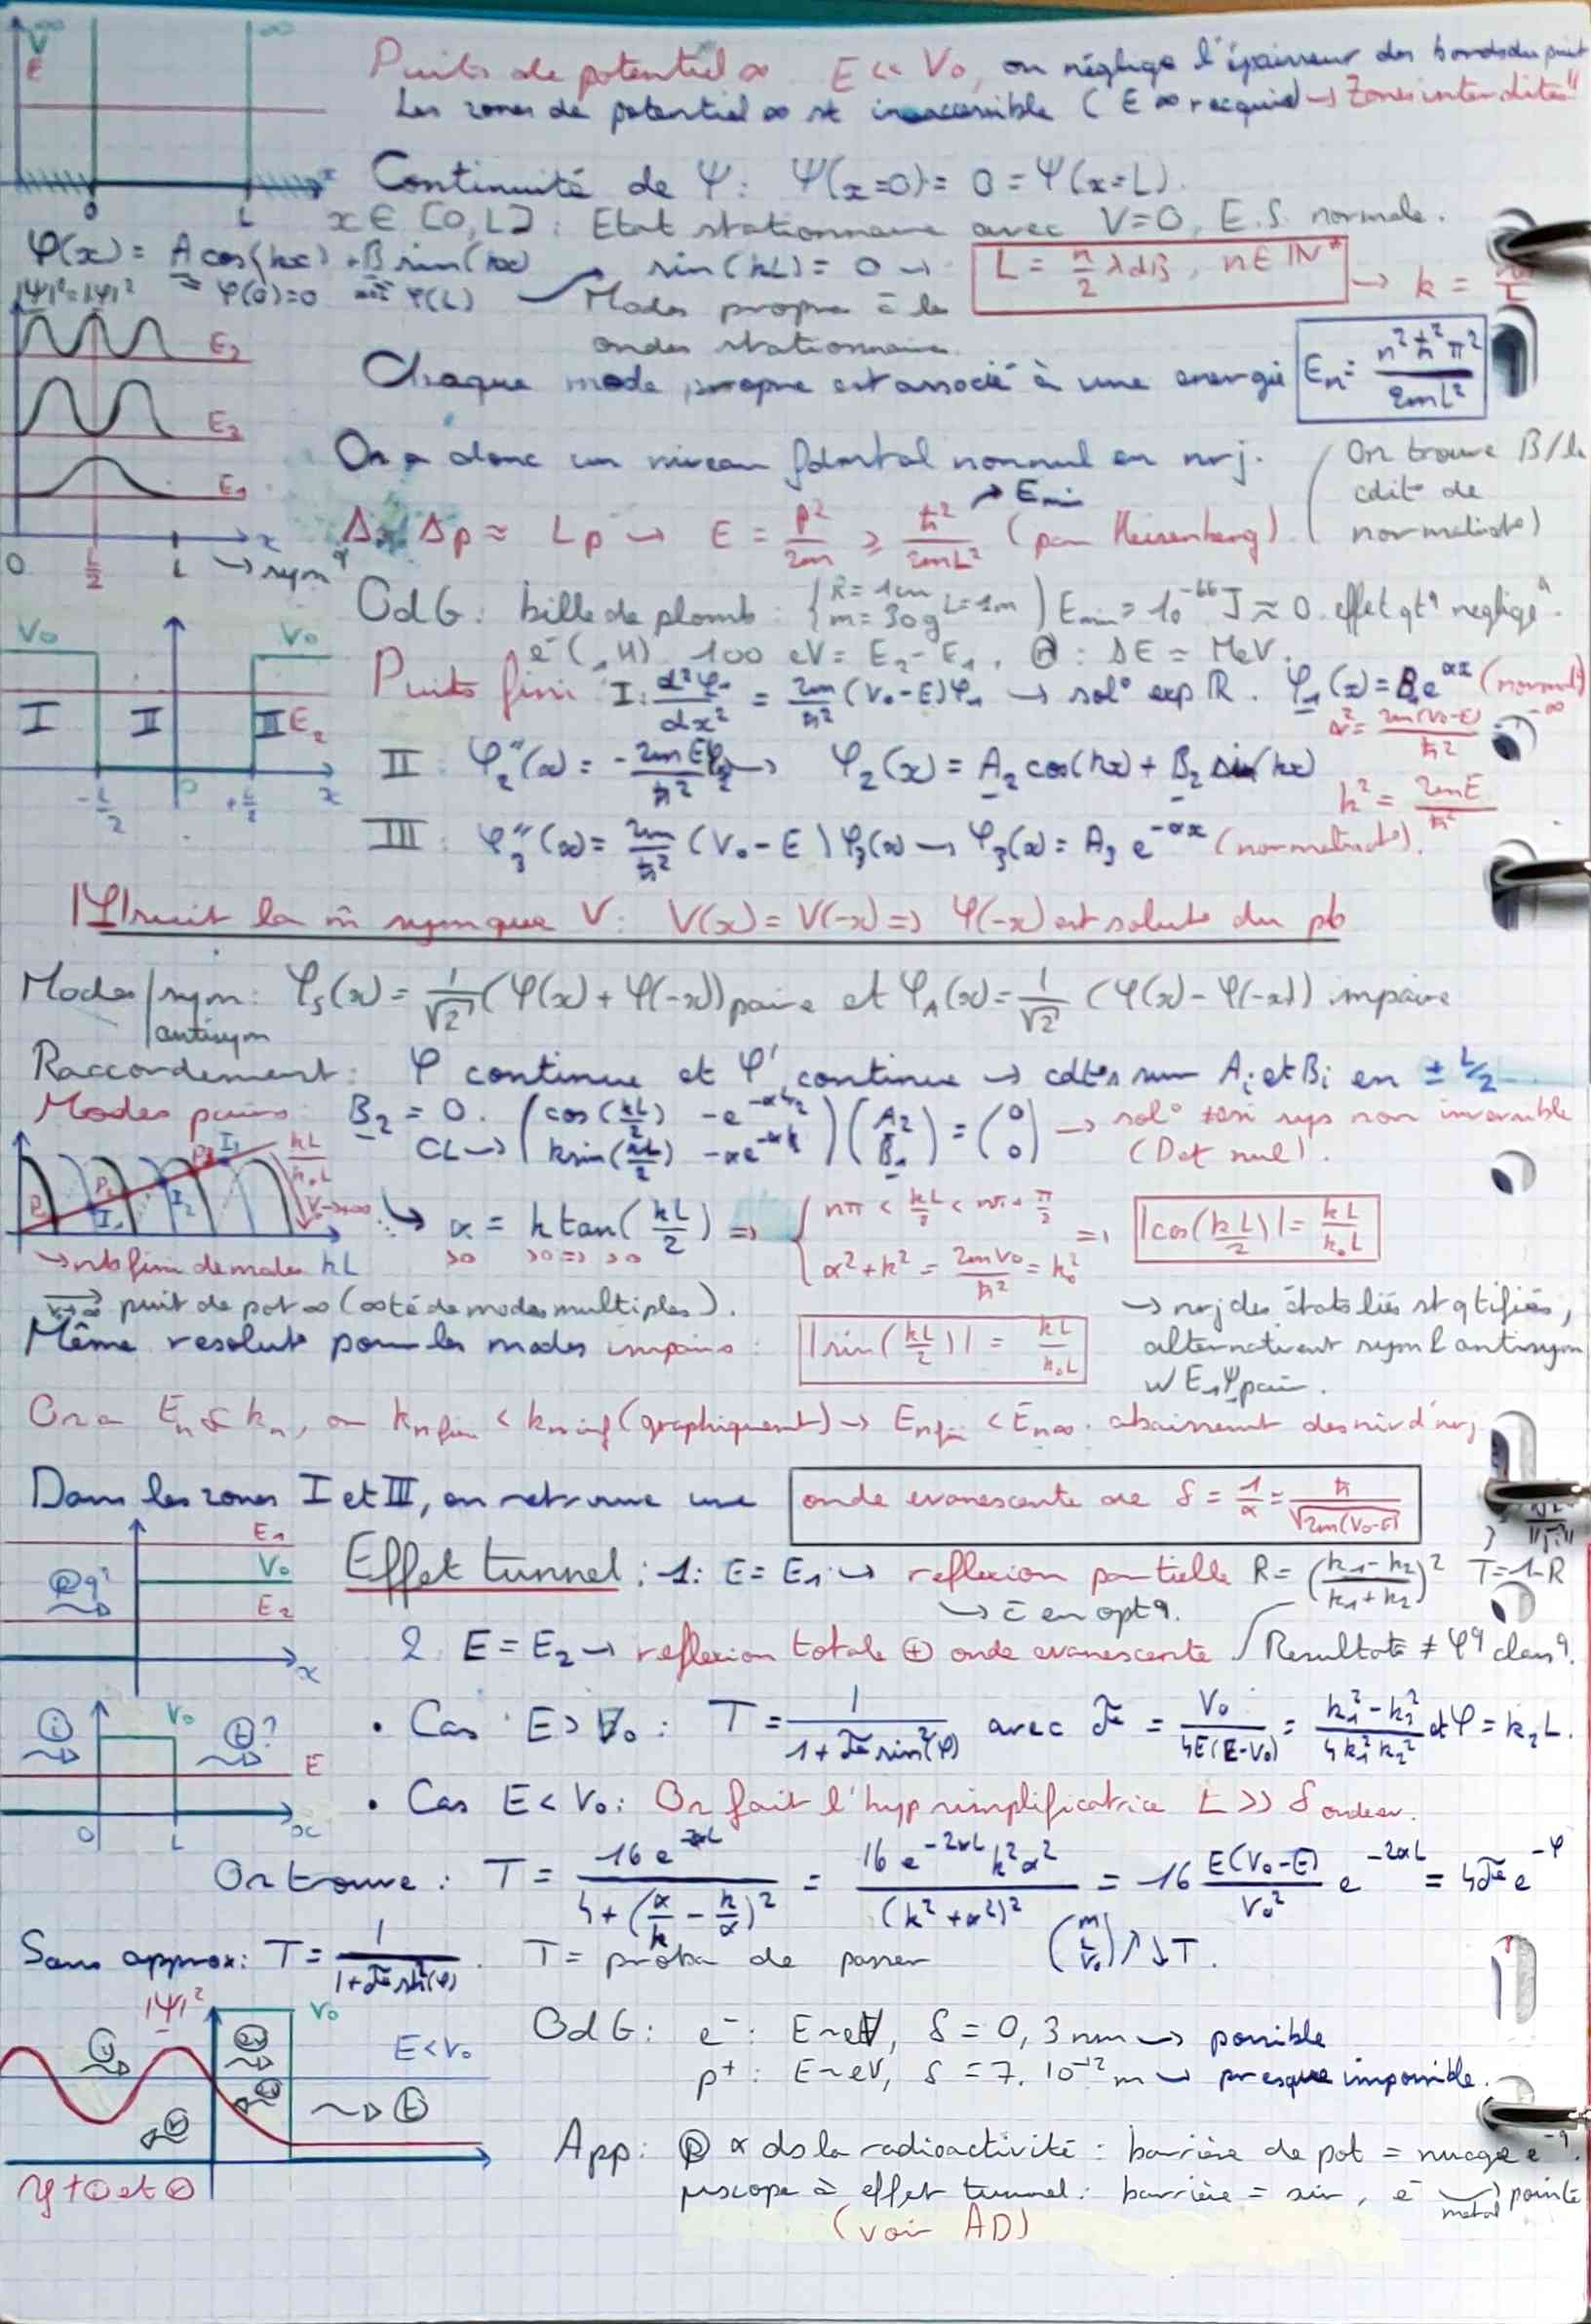 Puits de potentiel ∞ E << V₀, on néglige l'épaisseur des bords du puit
Les zones de potentiel ∞ st inaccessible (E ∞ requise → Zones interdites"
V
E
∞
∞
0
L
x
Continuité de Ψ: Ψ(x=0) = 0 = Ψ(x=L).
x ∈ [0,L]: Etat stationnaire avec V=0, E.S. normale.
φ(x) = A cos(kx) + B sin(kx) → sin(kL) = 0 → L = n/2 λdB, n ∈ ℕ* → k =
|Ψ|²=|φ|² φ(0)=0 φ(L) Modes propres à les
ondes stationnaires.
E₃
E₂
E₁
0
L/2
L
x
→ sym^q
Chaque mode propre est associé à une energie Eₙ = n²ħ²π²/2mL²
On a donc un niveau fdmtal nonnul en nrj.
(On trouve B/la
cdit° de
normalisat°)
Δx Δp ≈ Lp → E = p²/2m ≥ ħ²/2mL² → Emin (par Heisenberg).
OdG: bille de plomb: {R = 1cm m = 30g L=1m} Emin = 10⁻⁶⁶ J ≈ 0 effet qt^q neglige
e⁻(₁H) 100 eV = E₂-E₁, : ΔE = MeV.
V₀
V₀
I
II
III
E
-L/2
0
+L/2
x
Puits fini I: d²φ₁/dx² = 2m/ħ² (V₀-E)φ₁ → sol° exp ℝ. φ₁(x) = B₁e^αx
α² = 2m(V₀-E)/ħ²
-∞
II: φ₂''(x) = -2mE/ħ² φ₂ → φ₂(x) = A₂ cos(kx) + B₂ sin(kx)
k² = 2mE/ħ²
III: φ₃''(x) = 2m/ħ² (V₀-E) φ₃(x) → φ₃(x) = A₃ e^-αx (normalisat°).
|Ψ| suit la m̂ sym que V: V(x) = V(-x) => φ(-x) est solut° du pb
Modes | sym: φ_S(x) = 1/√2 (φ(x) + φ(-x)) paire et φ_A(x) = 1/√2 (φ(x) - φ(-x)) impaire
antisym
Raccordement: φ continue et φ' continue → cdt°s sur Aᵢ et Bᵢ en ± L/2
Modes pairs: B₂ = 0. (cos(kL/2) -e^-αL/2) (A₂) = (0) → sol° ssi sys non inversible
CL → (k sin(kL/2) -αe^-αL/2) (B₁) (0) (Det nul).
kL/k₀L
V→+∞
→ nb fini de modes kL
↳ α = k tan(kL/2) => {nπ < kL/2 < nπ + π/2 => |cos(kL/2)| = kL/k₀L
>0 >0 => >0 {α²+k² = 2mV₀/ħ² = k₀²
V→∞ puit de pot ∞ (∞té de modes multiples).
→ nrj des états liés st qtifiés,
Même resolut° pour les modes impairs: |sin(kL/2)| = kL/k₀L alternativent sym & antisym
w/ E₁ Ψ pair.
On a Eₙ ∝ kₙ, or kₙ fini < kₙ inf (graphiquement) → Eₙ fini < Eₙ∞. abaissement des niv d'nrj
Dans les zones I et III, on retrouve une onde evanescente de δ = 1/α = ħ/√2m(V₀-E)
E₁
V₀
E₂
x
Effet tunnel: 1: E = E₁ → reflexion partielle R = (k₁-k₂)²/(k₁+k₂)² T = 1-R
↳ c̄ en opt^q.
2. E = E₂ → reflexion totale ⊕ onde evanescente Resultats ≠ φ^q class^q.
i
V₀
t?
E
0
L
x
• Cas E > V₀: T = 1/1+𝓕 sin²(φ) avec 𝓕 = V₀/4E(E-V₀) = k₁²-k₂²/4k₁²k₂² et φ = k₂L.
• Cas E < V₀: On fait l'hyp simplificatrice L >> δ onde ev.
On trouve: T = 16 e^-2αL/4+(α/k - k/α)² = 16 e^-2αL k²α²/(k²+α²)² = 16 E(V₀-E)/V₀² e^-2αL = 4𝓕 e^-φ
Sans approx: T = 1/1+𝓕 sh²(φ). T = proba de passer (m L V₀) ↗ ↓T.
|Ψ|²
V₀
E < V₀
i
r
ev
t
OdG: e⁻: E ~ eV, δ = 0,3 nm → possible
p⁺: E ~ eV, δ = 7. 10⁻¹² m → presque impossible.
App: α ds la radioactivité: barrière de pot = nuage e⁻^q.
µscope à effet tunnel: barrière = air, e⁻ metal pointe
(voir AD)